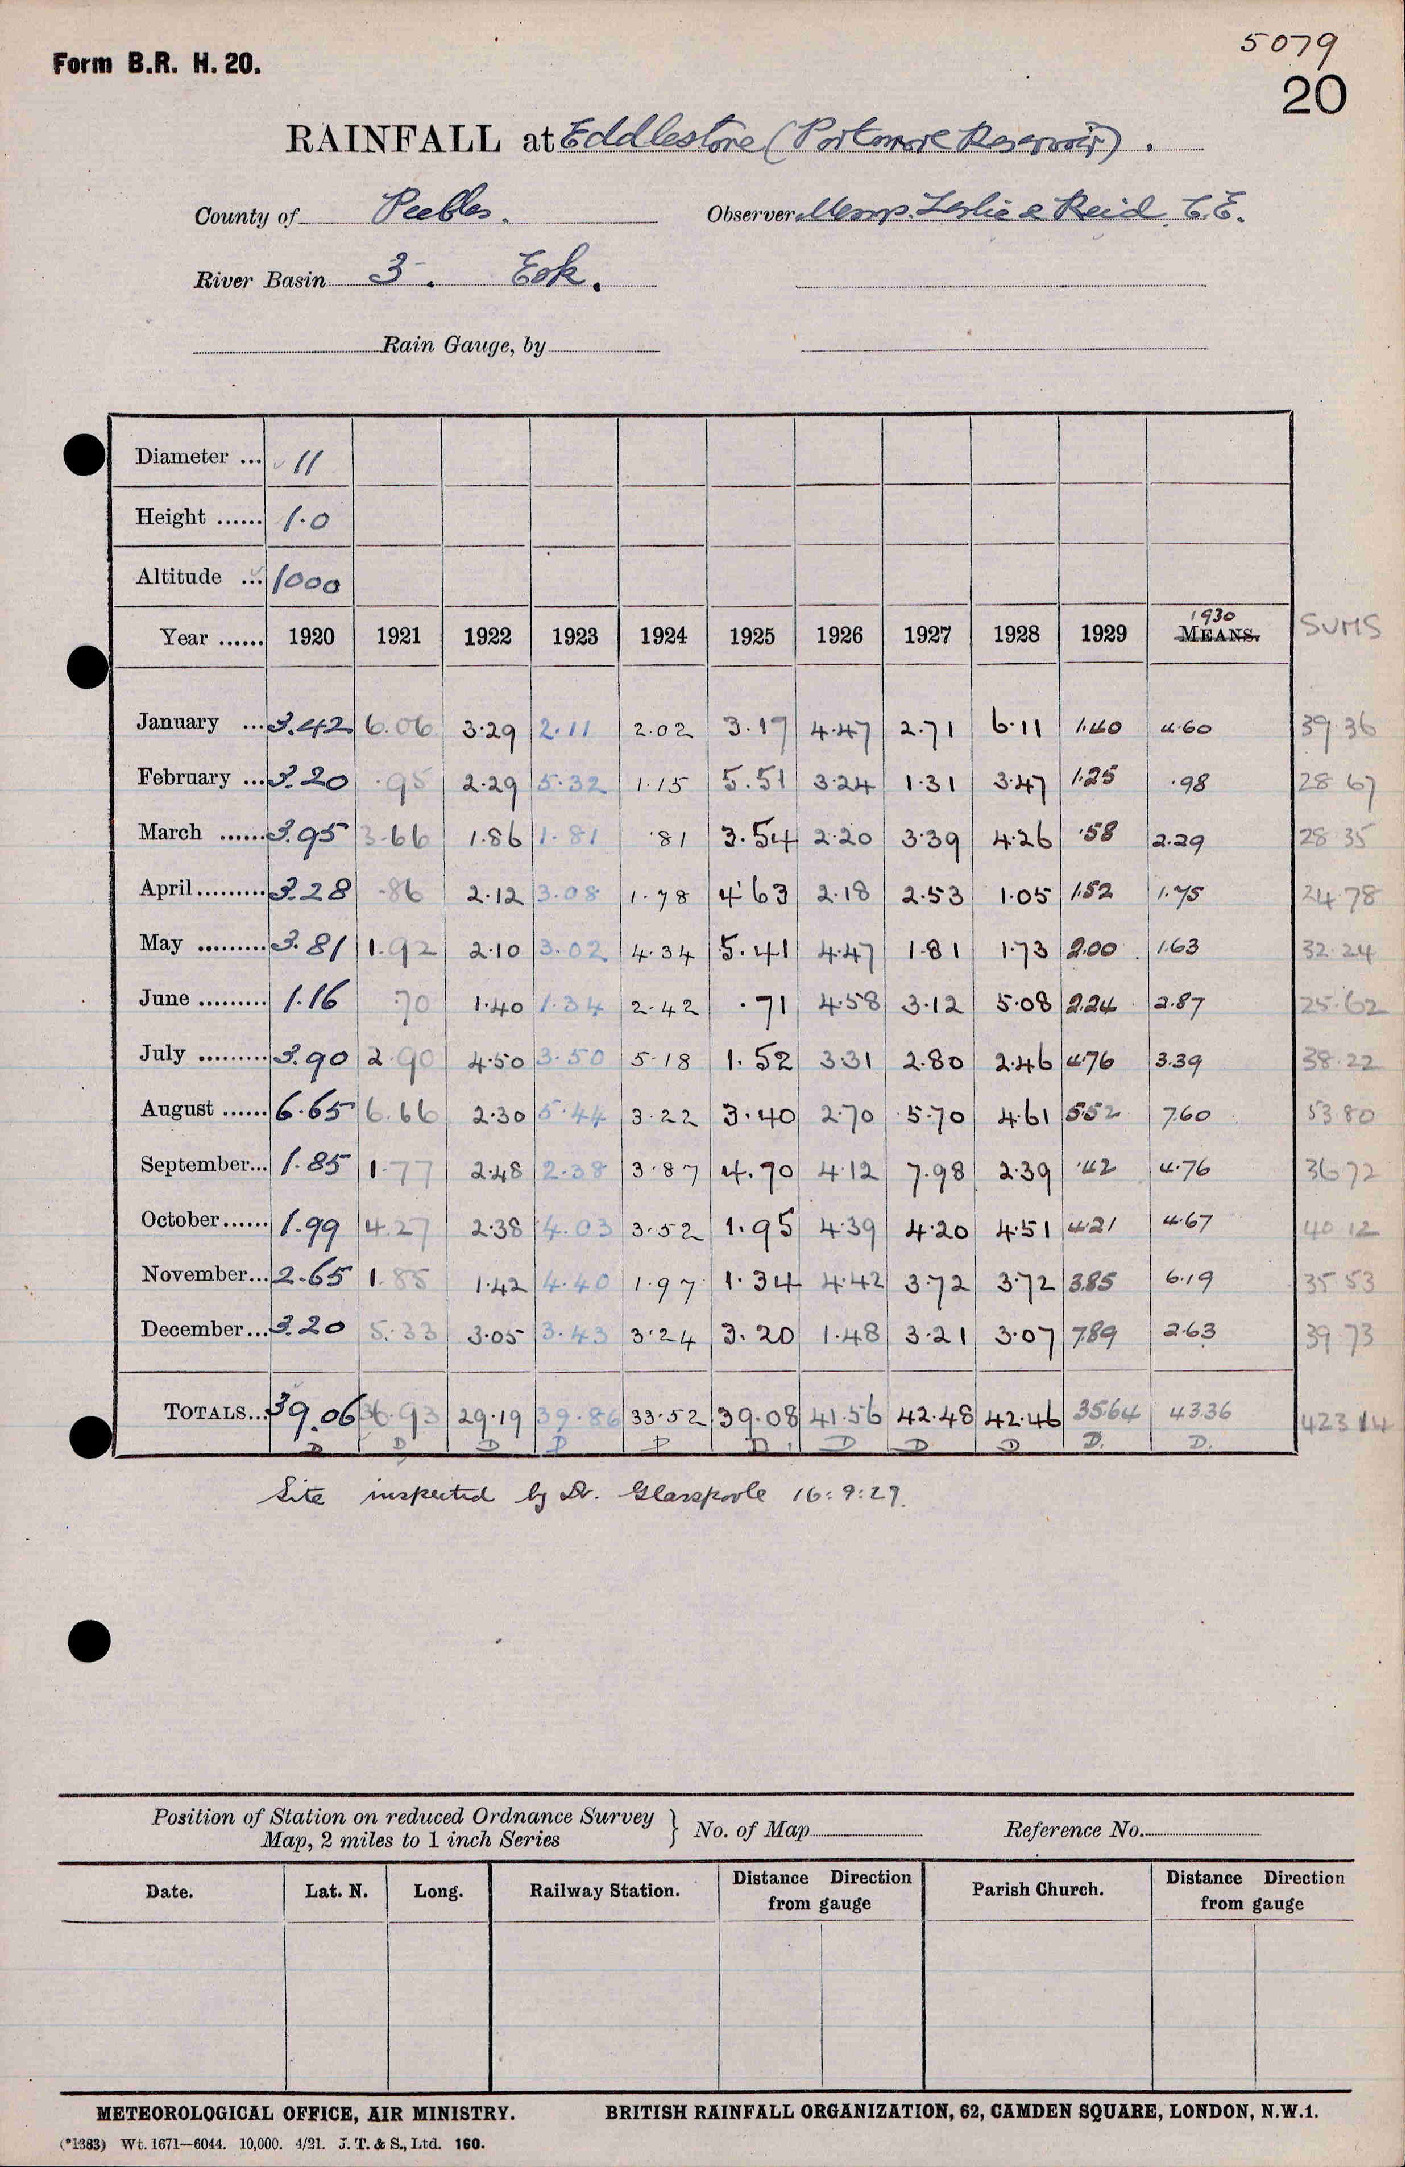 Form B.R. H. 20.
5079
20
RAINFALL at Eddlestone (Portmore Reservoir).
County of Peebles. Observer Messrs. Leslie & Reid C.E.
River Basin 3. Esk.
Rain Gauge, by
Diameter ... 11
Height ...... 1.0
Altitude ... 1000
Year ...... 1920 1921 1922 1923 1924 1925 1926 1927 1928 1929 1930 MEANS. SUMS
January ... 3.42 6.06 3.29 2.11 2.02 3.17 4.47 2.71 6.11 1.40 4.60 39.36
February ... 3.20 .95 2.29 5.32 1.15 5.51 3.24 1.31 3.47 1.25 .98 28.67
March ...... 3.95 3.66 1.86 1.81 .81 3.54 2.20 3.39 4.26 .58 2.29 28.35
April......... 3.28 .86 2.12 3.08 1.78 4.63 2.18 2.53 1.05 1.52 1.75 24.78
May ......... 3.81 1.92 2.10 3.02 4.34 5.41 4.47 1.81 1.73 2.00 1.63 32.24
June ......... 1.16 .70 1.40 1.34 2.42 .71 4.58 3.12 5.08 2.24 2.87 25.62
July ......... 3.90 2.90 4.50 3.50 5.18 1.52 3.31 2.80 2.46 4.76 3.39 38.22
August ...... 6.65 6.66 2.30 5.44 3.22 3.40 2.70 5.70 4.61 5.52 7.60 53.80
September... 1.85 1.77 2.48 2.38 3.87 4.70 4.12 7.98 2.39 .42 4.76 36.72
October...... 1.99 4.27 2.38 4.03 3.52 1.95 4.39 4.20 4.51 4.21 4.67 40.12
November... 2.65 1.85 1.42 4.40 1.97 1.34 4.42 3.72 3.72 3.85 6.19 35.53
December... 3.20 5.33 3.05 3.43 3.24 3.20 1.48 3.21 3.07 7.89 2.63 39.73
TOTALS... 39.06 36.93 29.19 39.86 33.52 39.08 41.56 42.48 42.46 35.64 43.36 423.14
D D D D D D. D D D D. D.
Site inspected by Dr. Glasspoole 16:9:27.
Position of Station on reduced Ordnance Survey
Map, 2 miles to 1 inch Series } No. of Map Reference No.
Date. Lat. N. Long. Railway Station. Distance Direction from gauge Parish Church. Distance Direction from gauge
METEOROLOGICAL OFFICE, AIR MINISTRY. BRITISH RAINFALL ORGANIZATION, 62, CAMDEN SQUARE, LONDON, N.W.1.
(*1383) Wt. 1671—6044. 10,000. 4/21. J. T. & S., Ltd. 160.